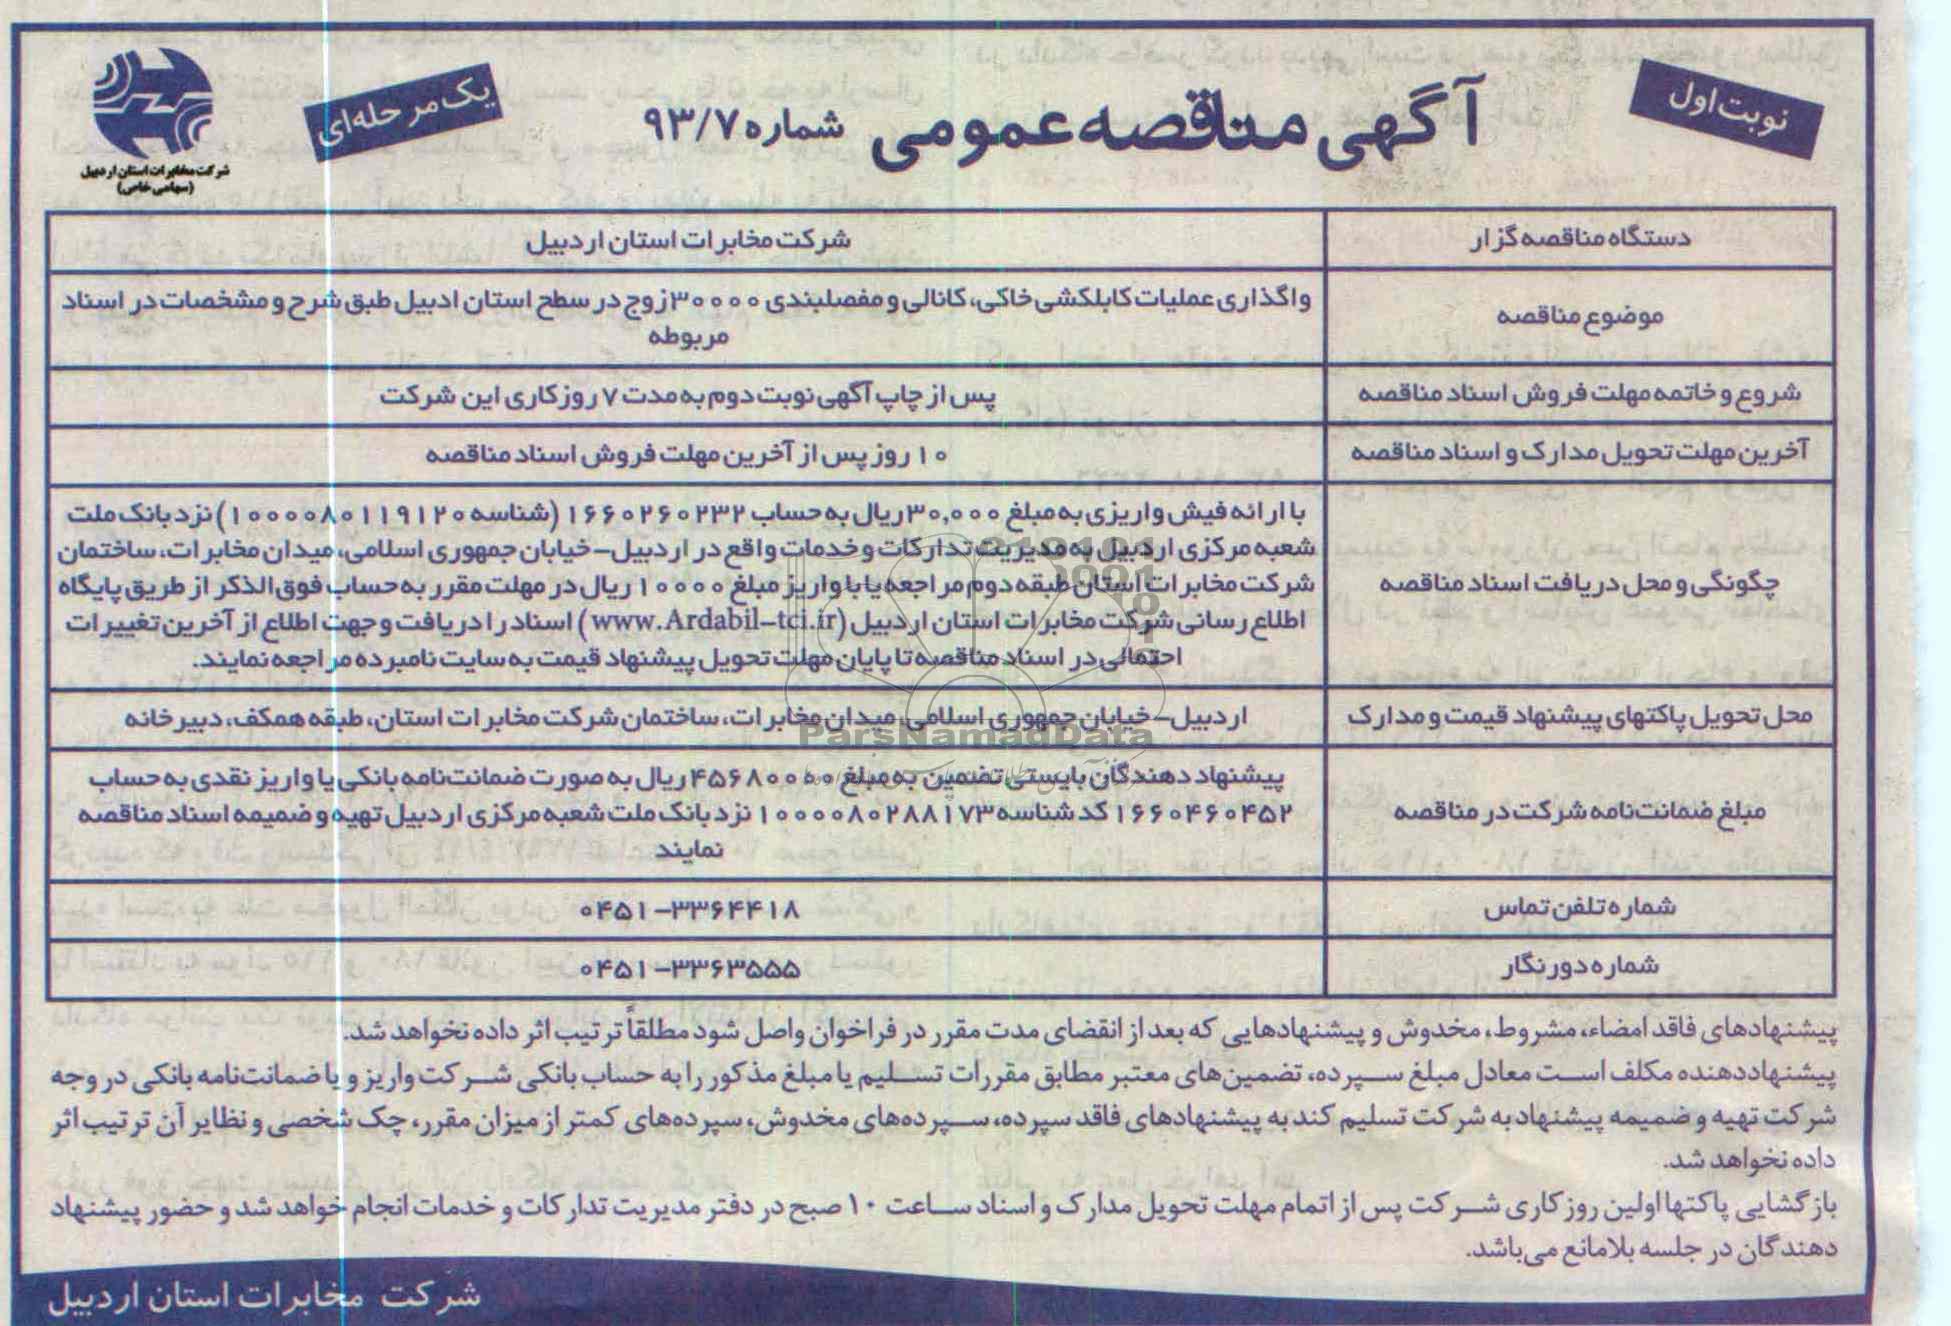 نوبت اول
آگهی مناقصه عمومی شماره ۹۳/۷
یک مرحله‌ای
شرکت مخابرات استان اردبیل
(سهامی خاص)
دستگاه مناقصه گزار
شرکت مخابرات استان اردبیل
موضوع مناقصه
واگذاری عملیات کابلکشی خاکی، کانالی و مفصلبندی ۳۰۰۰۰ زوج در سطح استان ادبیل طبق شرح و مشخصات در اسناد
مربوطه
شروع و خاتمه مهلت فروش اسناد مناقصه
پس از چاپ آگهی نوبت دوم به مدت ۷ روز کاری این شرکت
آخرین مهلت تحویل مدارک و اسناد مناقصه
۱۰ روز پس از آخرین مهلت فروش اسناد مناقصه
چگونگی و محل دریافت اسناد مناقصه
با ارائه فیش واریزی به مبلغ ۳۰,۰۰۰ ریال به حساب ۱۶۶۰۲۶۰۲۳۲ (شناسه ۱۰۰۰۰۸۰۱۱۹۱۲۰) نزد بانک ملت
شعبه مرکزی اردبیل به مدیریت تدارکات و خدمات واقع در اردبیل- خیابان جمهوری اسلامی، میدان مخابرات، ساختمان
شرکت مخابرات استان طبقه دوم مراجعه یا با واریز مبلغ ۱۰۰۰۰ ریال در مهلت مقرر به حساب فوق الذکر از طریق پایگاه
اطلاع رسانی شرکت مخابرات استان اردبیل (www.Ardabil-tci.ir) اسناد را دریافت و جهت اطلاع از آخرین تغییرات
احتمالی در اسناد مناقصه تا پایان مهلت تحویل پیشنهاد قیمت به سایت نامبرده مراجعه نمایند.
محل تحویل پاکتهای پیشنهاد قیمت و مدارک
اردبیل- خیابان جمهوری اسلامی، میدان مخابرات، ساختمان شرکت مخابرات استان، طبقه همکف، دبیرخانه
ParsNamadData
مبلغ ضمانت‌نامه شرکت در مناقصه
پیشنهاد دهندگان بایستی تضمین به مبلغ ۴۵۶۸۰۰۰۰ ریال به صورت ضمانت‌نامه بانکی یا واریز نقدی به حساب
۱۶۶۰۴۶۰۴۵۲ کد شناسه ۱۰۰۰۰۸۰۲۸۸۱۷۳ نزد بانک ملت شعبه مرکزی اردبیل تهیه و ضمیمه اسناد مناقصه
نمایند
شماره تلفن تماس
۰۴۵۱-۳۳۶۴۴۱۸
شماره دورنگار
۰۴۵۱-۳۳۶۳۵۵۵
پیشنهادهای فاقد امضاء، مشروط، مخدوش و پیشنهادهایی که بعد از انقضای مدت مقرر در فراخوان واصل شود مطلقاً ترتیب اثر داده نخواهد شد.
پیشنهاددهنده مکلف است معادل مبلغ سپرده، تضمین‌های معتبر مطابق مقررات تسلیم یا مبلغ مذکور را به حساب بانکی شرکت واریز و یا ضمانت‌نامه بانکی در وجه
شرکت تهیه و ضمیمه پیشنهاد به شرکت تسلیم کند به پیشنهادهای فاقد سپرده، سپرده‌های مخدوش، سپرده‌های کمتر از میزان مقرر، چک شخصی و نظایر آن ترتیب اثر
داده نخواهد شد.
بازگشایی پاکتها اولین روز کاری شرکت پس از اتمام مهلت تحویل مدارک و اسناد ساعت ۱۰ صبح در دفتر مدیریت تدارکات و خدمات انجام خواهد شد و حضور پیشنهاد
دهندگان در جلسه بلامانع می‌باشد.
شرکت مخابرات استان اردبیل